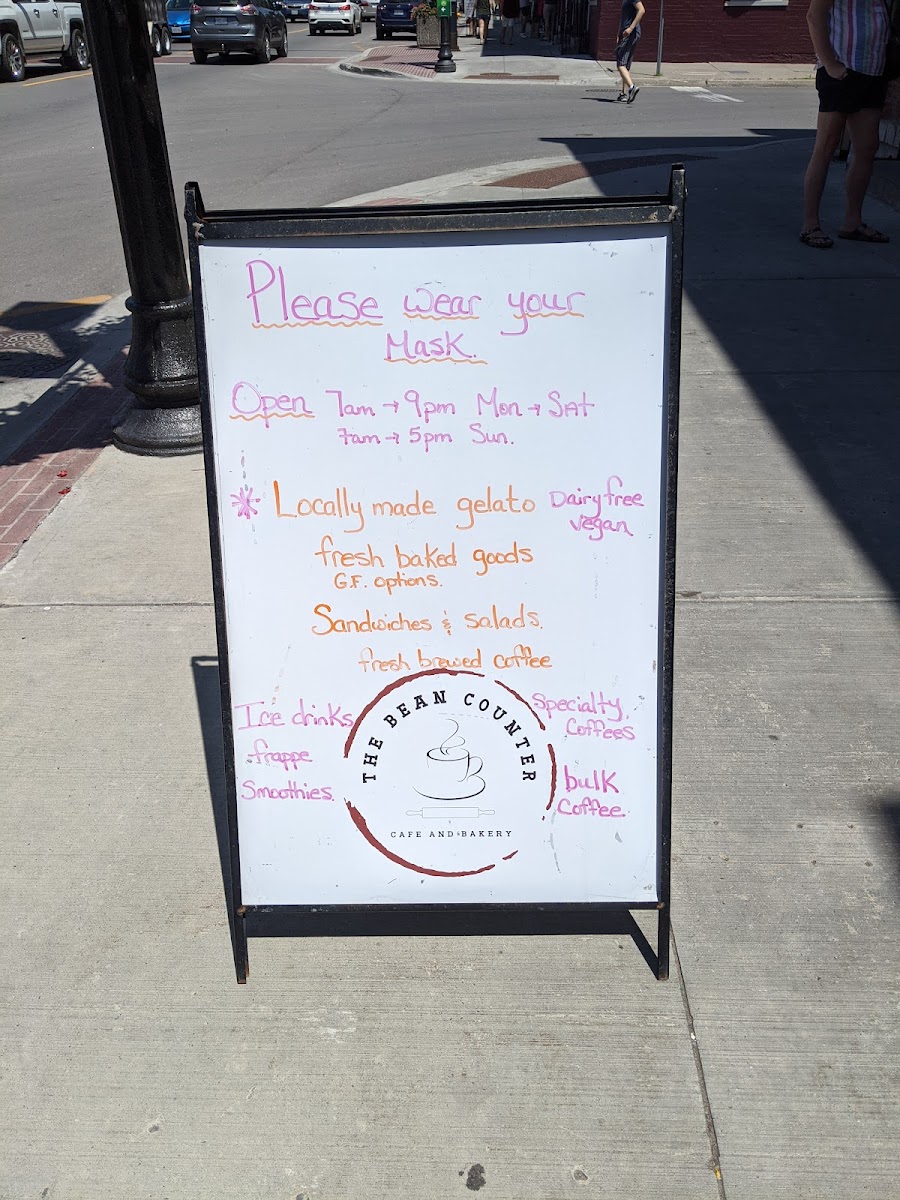 Please wear your
Mask.
Open 7am → 9pm Mon → SAt
7am → 5pm Sun.
* Locally made gelato Dairy free
vegan
fresh baked goods
G.F. options.
Sandwiches & salads.
fresh brewed coffee
Ice drinks
frappe
Smoothies.
THE BEAN COUNTER
CAFE AND BAKERY
Specialty
Coffees
bulk
Coffee.